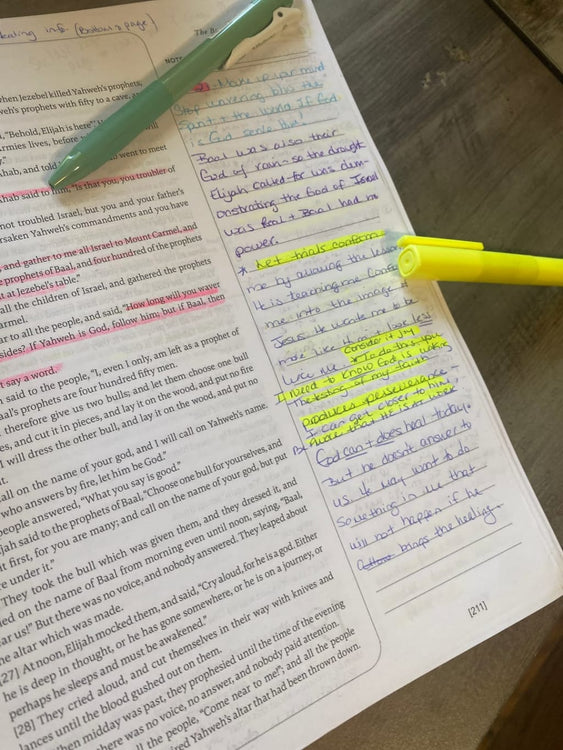 ealing info (Baibars page)
The B
NOT
when Jezebel killed Yahweh's prophets,
weh's prophets with fifty to a cave, a
, "Behold, Elijah is here"
Armies lives, before
y."
hab, and told
went to meet
hab said to him, "Is that you, you troubler of
not troubled Israel, but you and your father's
rsaken Yahweh's commandments and you have
, and gather to me all Israel to Mount Carmel, and
e prophets of Baal, and four hundred of the prophets
at at Jezebel's table."
all the children of Israel, and gathered the prophets
armel.
ar to all the people, and said, "How long will you waver
sides? If Yahweh is God, follow him; but if Baal, then
t say a word.
h said to the people, "I, even I only, am left as a prophet of
aal's prophets are four hundred fifty men.
therefore give us two bulls; and let them choose one bull
es, and cut it in pieces, and lay it on the wood, and put no fire
I will dress the other bull, and lay it on the wood, and put no
t.
all on the name of your god, and I will call on Yahweh's name.
who answers by fire, let him be God."
people answered, "What you say is good."
jah said to the prophets of Baal, "Choose one bull for yourselves, and
t first, for you are many; and call on the name of your god, but put
e under it."
They took the bull which was given them, and they dressed it, and
lled on the name of Baal from morning even until noon, saying, "Baal,
ear us!" But there was no voice, and nobody answered. They leaped about
he altar which was made.
[27] At noon, Elijah mocked them, and said, "Cry aloud, for he is a god. Either
he is deep in thought, or he has gone somewhere, or he is on a journey, or
perhaps he sleeps and must be awakened."
[28] They cried aloud, and cut themselves in their way with knives and
lances until the blood gushed out on them.
hen midday was past, they prophesied until the time of the evening
here was no voice, no answer, and nobody paid attention.
ll the people, "Come near to me!"; and all the people
ired Yahweh's altar that had been thrown down.
21 - Make up your mind
Stop wavering b/w the
Spirit + the world. If God
is God serve Him!
Baal was also their
God of rain - so the drought
Elijah called for was dem-
onstrating the God of Israel
was Real + Baal had no
power.
* Let trials conform
me by avoiding the lesson
it is teaching me. Confo
me into the image of
Jesus. He wants me to be
more like Him + look less
like me. Consider it joy
* To do this you
I need to know God is wants
The testing of my faith
produces perseverance -
I can get closer to him,
know that He is at work
But God can + does heal today.
But he doesn't answer to
us. He may want to do
something in me that
will not happen if he
brings the healing.
[211]